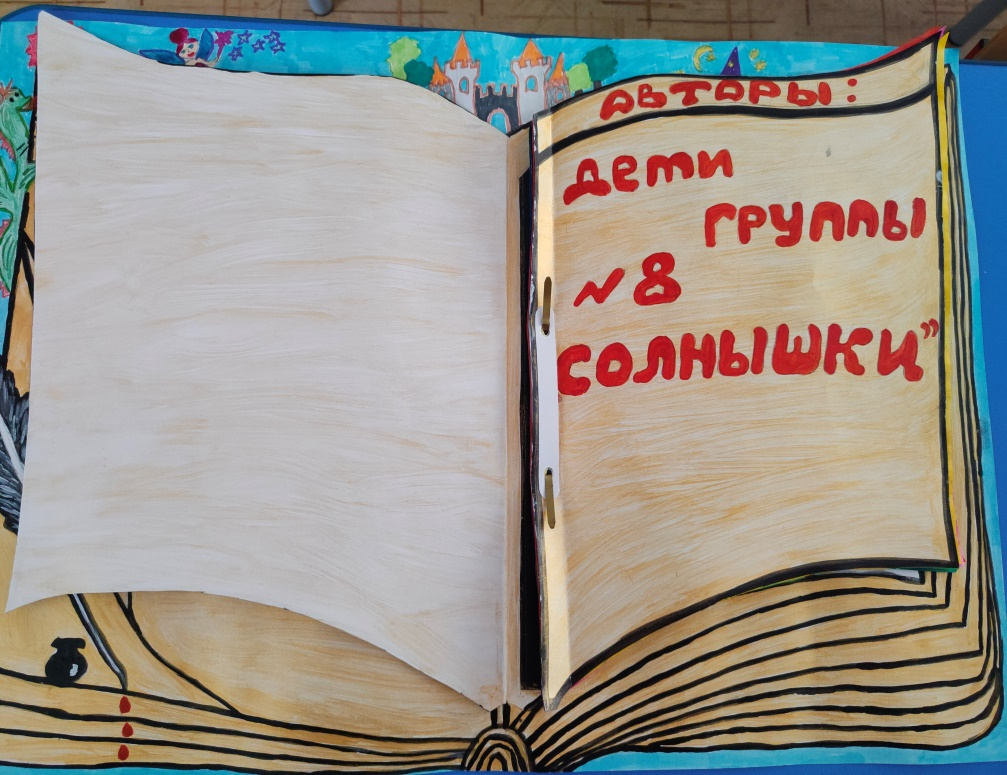 АВТОРЫ:
Дети
группы
№8
СОЛНЫШКИ”